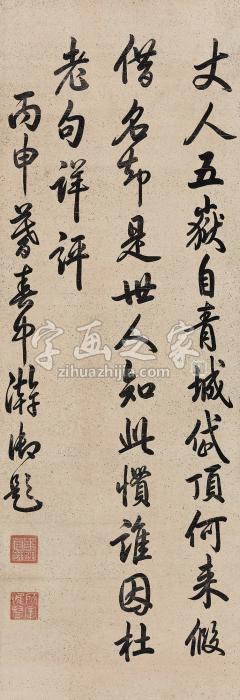 丈人五嶽自青城岱頂何来假
借名却是世人知此慣誰因杜
老句詳評
丙申暮春中澣御題
字画之家
zihuazhijia.com